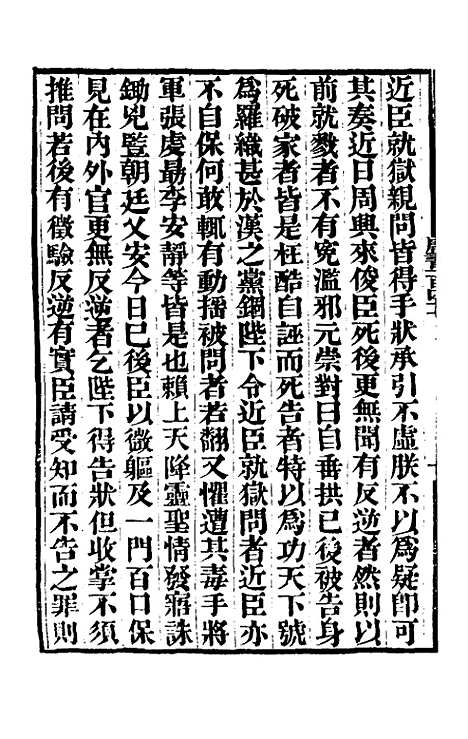 近臣就獄親問皆得手狀承引不虛朕不以爲疑卽可
其奏近日周興來俊臣死後更無聞有反逆者然則以
前就戮者不有寃濫邪元崇對曰自垂拱已後被告身
死破家者皆是枉酷自誣而死告者特以爲功天下號
爲羅織甚於漢之黨錮陛下令近臣就獄問者近臣亦
不自保何敢輒有動搖被問者若翻又懼遭其毒手將
軍張虔勗李安靜等皆是也賴上天降靈聖情發寤誅
鋤兇豎朝廷乂安今日已後臣以微軀及一門百口保
見在內外官更無反逆者乞陛下得告狀但收掌不須
推問若後有徵驗反逆有實臣請受知而不告之罪則